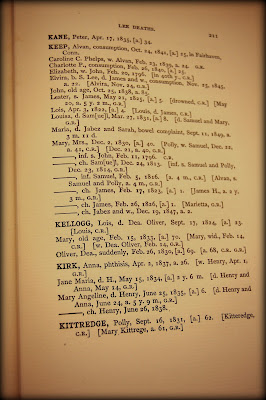 LEE DEATHS.
211
KANE, Peter, Apr. 17, 1835, [a.] 34.
KEEP, Alvan, consumption, Oct. 24, 1841, [a.] 25, in Fairhaven,
Conn.
Caroline C. Phelps, w. Alvan, Feb. 23, 1839, a. 24. G.R.
Charlotte P., consumption, Feb. 26, 1840, [a.] 25.
Elizabeth, w. John, Feb. 20, 1796. [In 40th y. C.R.]
Elvira, b. S. Lee, d. James and w., consumption, Nov. 25, 1845,
a. 22. [Alvira, Nov. 24, G.R.]
John, old age, Oct. 25, 1858, a. 85.
Lester, s. James, May 21, 1825, [a.] 5. [drowned, C.R.] [May
20, a. 5 y. 2 m., G.R.]
Lois, Apr. 3, 1822, [a.] 4. [Louis, d. James, C.R.]
Louisa, d. Sam[ue]l, Mar. 27, 1832, [a.] 8. [d. Samuel and Mary,
G.R.]
Maria, d. Jabez and Sarah, bowel complaint, Sept. 11, 1849, a.
3 m. 11 d.
Mary, Mrs., Dec. 2, 1830, [a.] 40. [Polly, w. Samuel, Dec. 22,
a. 41, C.R.] [Dec. 21, a. 40, G.R.]
———, inf. s. John, Feb. 11, 1796. C.R.
———, ch. Sam[ue]l, Dec. 24, 1815. [inf. s. Samuel and Polly,
Dec. 23, 1814, G.R.]
———, inf. Samuel, Feb. 5, 1816. [a. 4 m., C.R.] [Alvan, s.
Samuel and Polly, a. 4 m., G.R.]
———, ch. James, Feb. 17, 1825, [a.] 1. [James H., a. 2 y.
3 m., G.R.]
———, ch. James, Feb. 26, 1826, [a.] 1. [Marietta, G.R.]
———, ch. Jabez and w., Dec. 19, 1847, a. 2.
KELLOGG, Lois, d. Dea. Oliver, Sept. 17, 1814, [a.] 23.
[Louis, C.R.]
Mary, old age, Feb. 13, 1835, [a.] 70. [Mary, wid., Feb. 14,
C.R.] [w. Dea. Oliver, Feb. 14, G.R.]
Oliver, Dea., suddenly, Feb. 26, 1830, [a.] 69. [a. 68, C.R. G.R.]
KIRK, Anna, phthisis, Apr. 2, 1837, a. 26. [w. Henry, Apr. 1,
G.R.]
Jane Maria, d. H., May 15, 1834, [a.] 2 y. 6 m. [d. Henry and
Anna, May 14, G.R.]
Mary Angeline, d. Henry, June 25, 1835, [a.] 6. [d. Henry and
Anna, June 24, a. 5 y. 9 m., G.R.]
———, ch. Henry, June 26, 1838.
KITTREDGE, Polly, Sept. 16, 1831, [a.] 62. [Kitteredge,
C.R.] [Mary Kittrege, a. 61, G.R.]